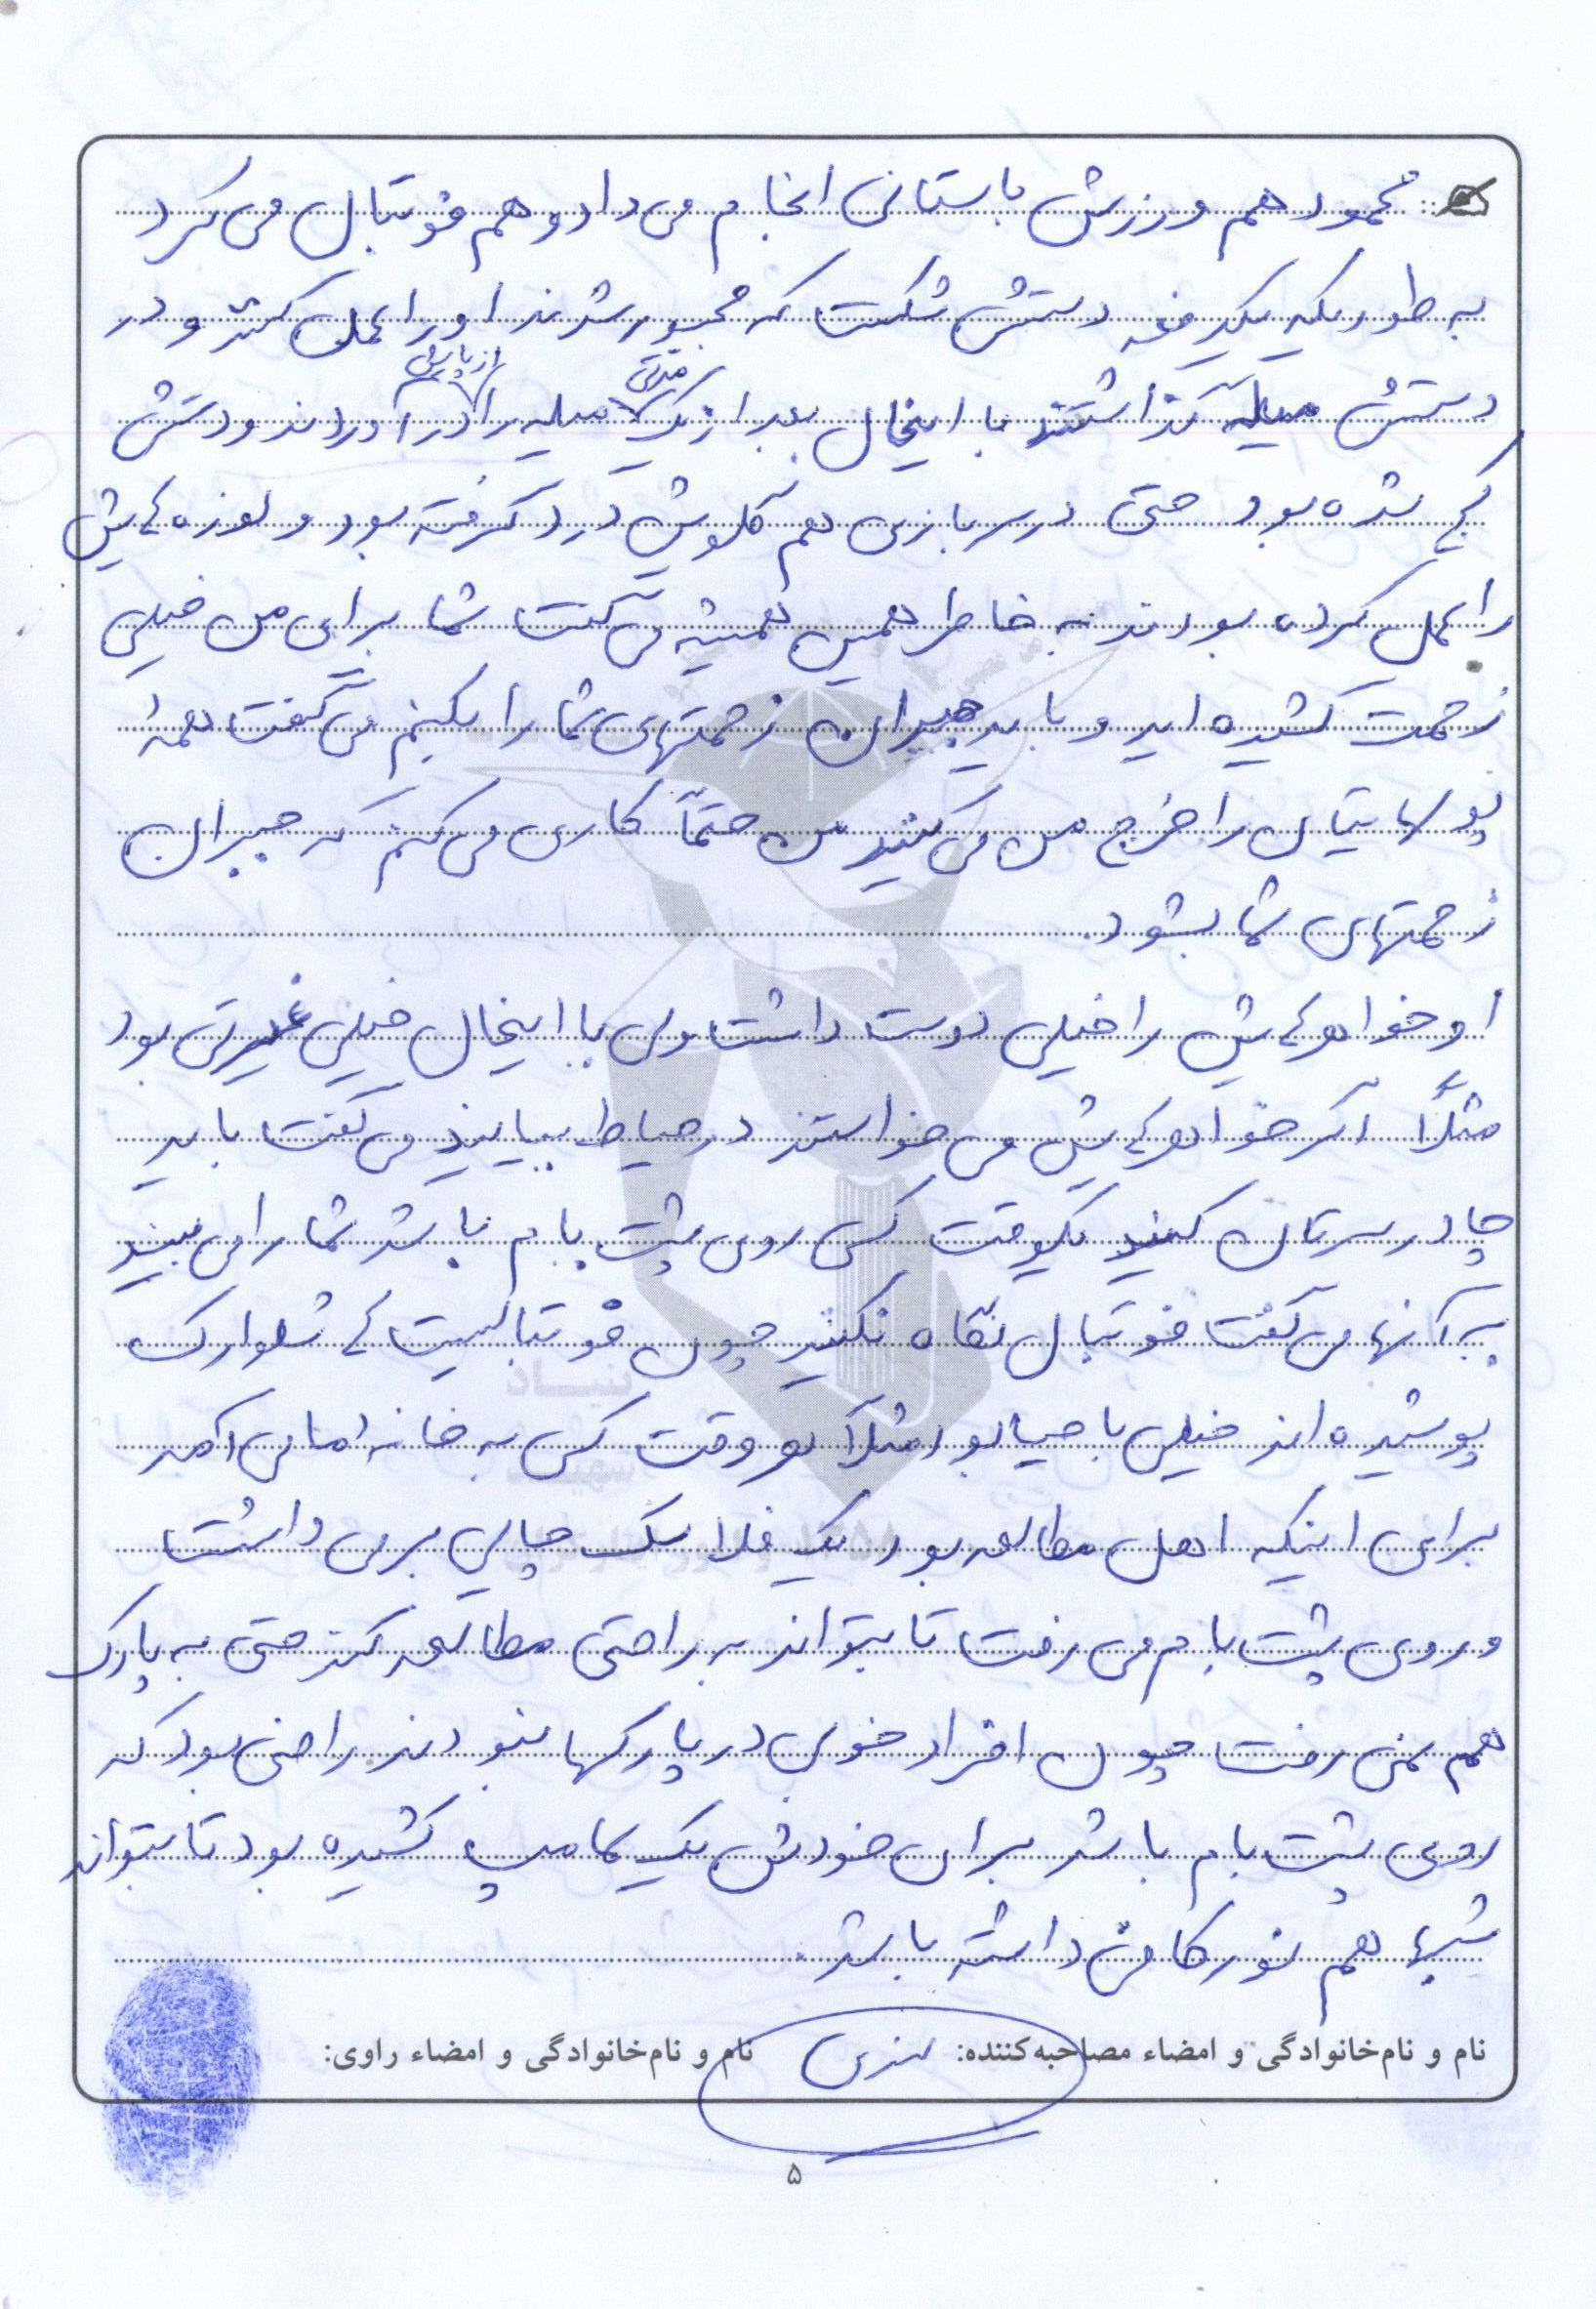 محمود هم ورزش باستانی انجام می داد و هم فوتبال می کرد
به طوریکه یکدفعه دستش شکست که مجبور شدند او را عمل کنند و در
دستش میله گذاشتند با اینحال بعد از یک مدتی میله را از پایش درآوردند و دستش
کج شده بود حتی در سربازی هم گلویش درد گرفته بود و لوزه هایش
را عمل کرده بودند به خاطر همین همیشه می گفت شما برای من خیلی
زحمت کشیده اید و باید جبران زحمتهای شما را بکنم می گفت همه
پولهایتان را خرج من می کنید من حتماً کاری می کنم که جبران
زحمتهای شما بشود.
او خواهرهایش را خیلی دوست داشت ولی با اینحال خیلی غیرتی بود
مثلاً اگر خواهرهایش می خواستند در حیاط بیایند می گفت باید
چادر سرتان کنید یکوقت کسی روی پشت بام باشد شما را می بیند
به آنها می گفت فوتبال نگاه نکنید چون فوتبالیست ها شلوارک
پوشیده اند خیلی با حیا بود مثلاً هر وقت کسی به خانه امان می آمد
برای اینکه اهل مطالعه بود یک فلاسک چایی برمی داشت
و روی پشت بام می رفت تا بتواند به راحتی مطالعه کند حتی به پارک
هم نمی رفت چون افراد خوبی در پارکها نبودند راضی بود که
روی پشت بام باشد برای خودش یک لامپ کشیده بود تا بتواند
شبها هم نور کافی داشته باشد.
نام و نام‌خانوادگی و امضاء مصاحبه‌کننده: نام و نام‌خانوادگی و امضاء راوی:
۵